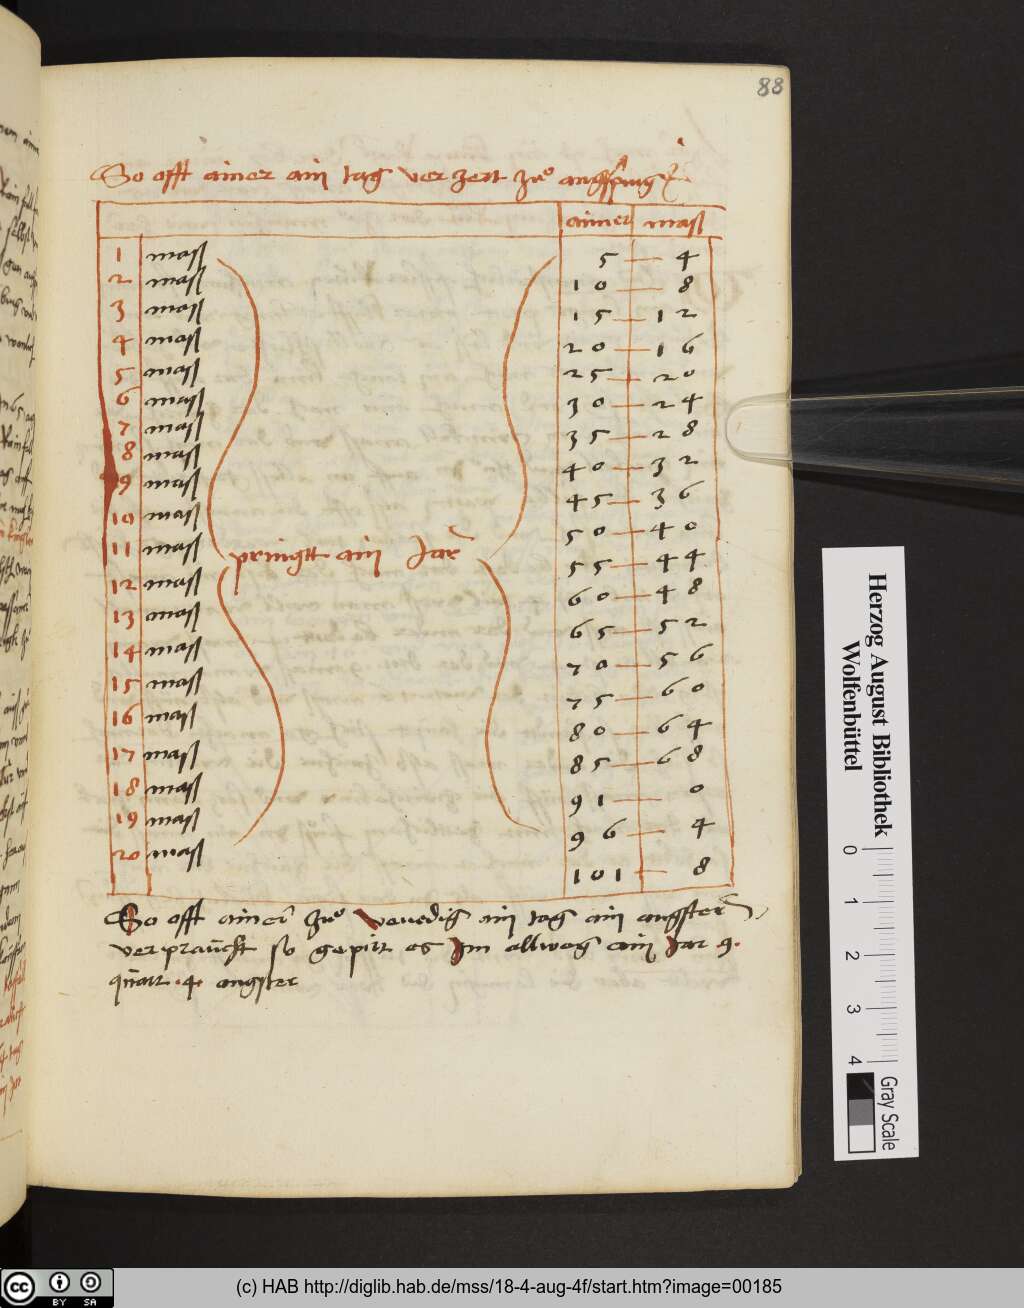 88
So offt ainer ain tag verzert zuo
ainer masß
1 masß 5 — 4
2 masß 10 — 8
3 masß 15 — 12
4 masß 20 — 16
5 masß 25 — 20
6 masß 30 — 24
7 masß 35 — 28
8 masß 40 — 32
9 masß 45 — 36
10 masß 50 — 40
11 masß 55 — 44
pringtt ain Jar
12 masß 60 — 48
13 masß 65 — 52
14 masß 70 — 56
15 masß 75 — 60
16 masß 80 — 64
17 masß 85 — 68
18 masß 91 — 0
19 masß 96 — 4
20 masß 101 — 8
So offt ainer zuo venedig ain tag ain angster
verpraucht so gepirt es Im allweg ain Jar 9.
quart .4. angster
Herzog August Bibliothek
Wolfenbüttel
0 1 2 3 4
Gray Scale
cc BY SA
(c) HAB http://diglib.hab.de/mss/18-4-aug-4f/start.htm?image=00185